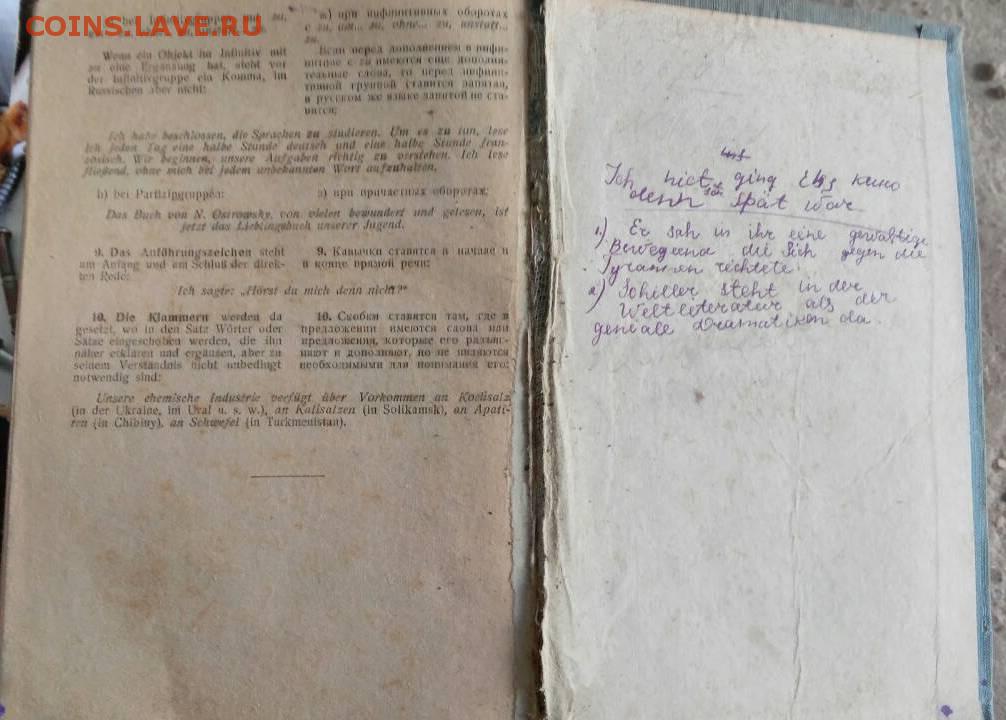 COINS.LAVE.RU
Wenn ein Objekt im Infinitiv mit
zu eine Ergänzung hat, steht vor
der Infinitivgruppe ein Komma, im
Russischen aber nicht:
а) при инфинитивных оборотах
с zu, um... zu, ohne... zu, anstatt...
zu.
Если перед дополнением в инфи-
нитиве с zu имеются еще дополни-
тельные слова, то перед инфини-
тивной группой ставится запятая,
в русском же языке запятой не ста-
вится:
Ich habe beschlossen, die Sprachen zu studieren. Um es zu tun, lese
ich jeden Tag eine halbe Stunde deutsch und eine halbe Stunde fran-
zösisch. Wir beginnen, unsere Aufgaben richtig zu verstehen. Ich lese
fließend, ohne mich bei jedem unbekannten Wort aufzuhalten.
b) bei Partizipgruppen:
а) при причастных оборотах:
Das Buch von N. Ostrowsky, von vielen bewundert und gelesen, ist
jetzt das Lieblingsbuch unserer Jugend.
9. Das Anführungszeichen steht
am Anfang und am Schluß der direk-
ten Rede:
9. Кавычки ставятся в начале и
в конце прямой речи:
Ich sagte: „Hörst du mich denn nicht?“
10. Die Klammern werden da
gesetzt, wo in den Satz Wörter oder
Sätze eingeschoben werden, die ihn
näher erklären und ergänzen, aber zu
seinem Verständnis nicht unbedingt
notwendig sind:
10. Скобки ставятся там, где в
предложении имеются слова или
предложения, которые его разъяс-
няют и дополняют, но не являются
необходимыми для понимания его:
Unsere chemische Industrie verfügt über Vorkommen an Kochsalz
(in der Ukraine, im Ural u. s. w.), an Kalisalzen (in Solikamsk), an Apati-
ten (in Chibiny), an Schwefel (in Turkmenistan).
Ich nict ging ins kino
denn spät war
1.) Er sah in ihr eine gewaltige
Bewegung die sich gegen die
Tyrannen richtete.
2) Schiller steht in der
Weltliteratur als der
geniale dramatiker da.